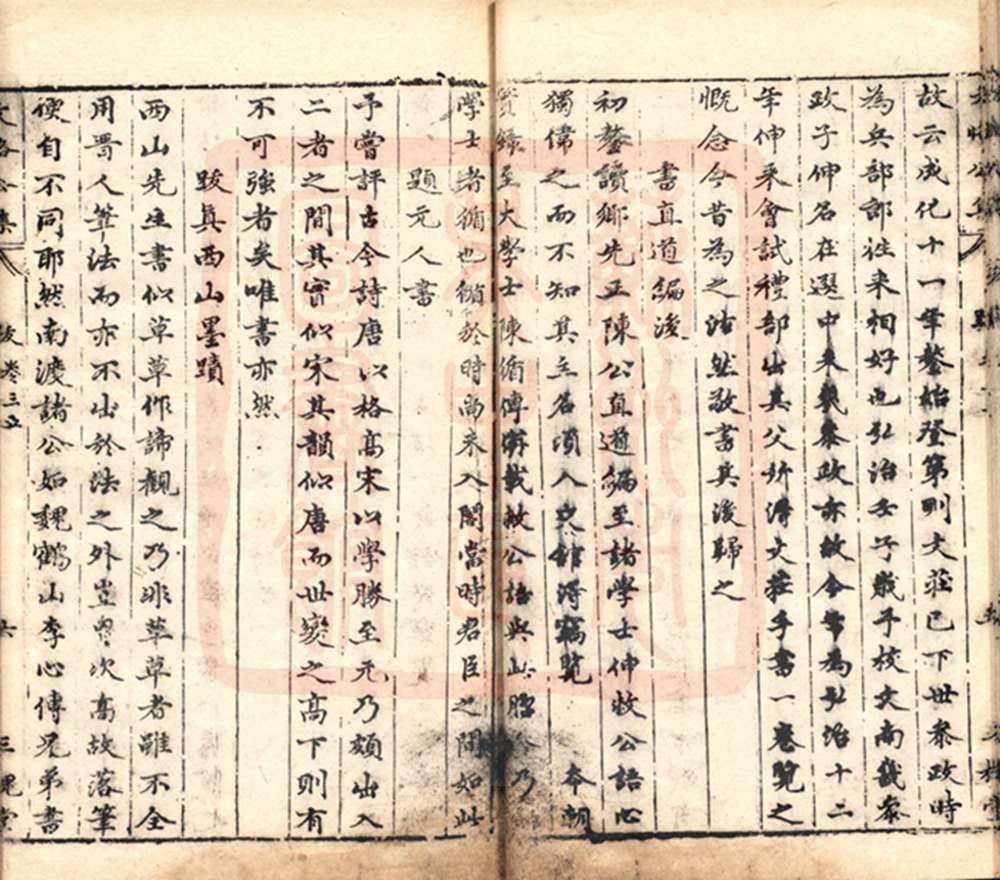 故云成化十一年鏊始登第則文莊已下世叅政時
為兵部郎往来相好也弘治壬子㦲予校文南畿叅
政子伸名在選中未㡬叅政亦故今年為弘治十二
年伸来會試禮部出其父所得文莊手書一卷覽之
慨念今昔為之法然敬書其後歸之
書直道編後
初鏊讀鄉先正陳公直道編至諸學士伸救公語心
獨偉之而不知其主名湏入史舘得竊覽 本朝
實錄至大學士陳循傳稱載救公語與此脗合乃
學士者循也循於時尚未入閣當時君臣之間如此
題元人書
予嘗評古今詩唐以格高宋以學勝至元乃頗出入
二者之間其實似宋其韻似唐而世変之高下則有
不可強者矣唯書亦然
跋真西山墨蹟
西山先生書似草草作諦觀之乃非草草者雖不全
用晋人筆法而亦不出於法之外豈胷次高故落筆
便自不同耶然南渡諸公如魏鶴山李心傳兄弟書
文恪公集 跋卷三五 六 三槐堂